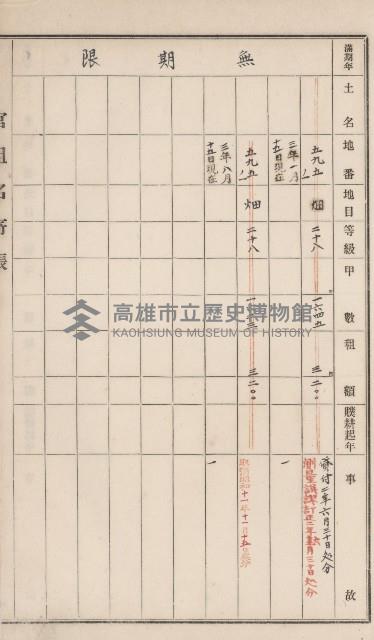 滿期年
無期限
土名
地番
地目
等級
甲數
租額
贌耕起年
事故
三年一月
十五日現在
五九五
畑
二十八
一六四五
三二〇〇
貸付二年六月三十日処分
測量誤謬訂正二年
月三十日処分
一
三年八月
十五日現在
五九五
畑
二十八
三二〇〇
取消昭和十一年十一月十五日
一
官租名寄帳
高雄市立歷史博物館
KAOHSIUNG MUSEUM OF HISTORY